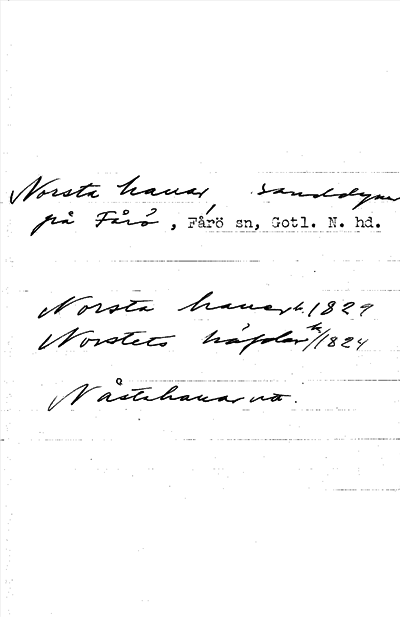 Norsta hauar, sanddyner
på Fårö, Fårö sn, Gotl. N. hd.
Norsta hauar k. 1829
Norstets håfdar k/1824
Nåstahauar